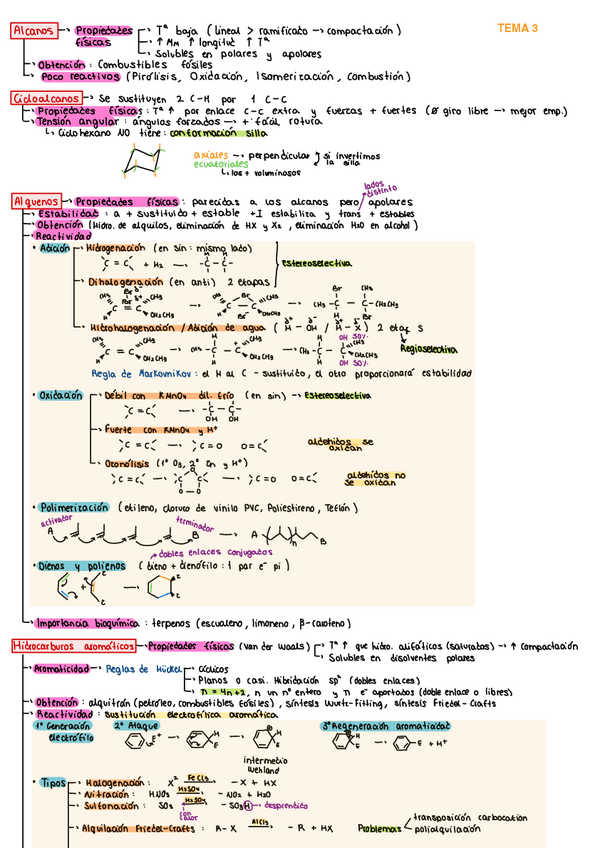 TEMA 3
Alcanos → Propiedades físicas → Tª baja (lineal > ramificado → compactación)
↑ MM ↑ longitud ↑ Tª
Solubles en polares y apolares
Obtención: Combustibles fósiles
Poco reactivos (Pirólisis, Oxidación, Isomerización, Combustión)
Cicloalcanos → Se sustituyen 2 C-H por 1 C-C
Propiedades físicas: Tª ↑ por enlace C-C extra y fuerzas + fuertes (Ø giro libre → mejor emp.)
Tensión angular: ángulos forzados → + fácil rotura
Ciclohexano NO tiene: conformación silla
axiales → perpendicular si invertimos la silla
ecuatoriales
los + voluminosos
lados distinto
Alquenos → Propiedades físicas: parecidas a los alcanos pero apolares
Estabilidad: a + sustituido + estable +I estabiliza y trans + estables
Obtención (Hidro. de alquilos, eliminación de HX y X2, eliminación H2O en alcohol)
Reactividad
Adición → Hidrogenación (en sin: mismo lado)
C=C + H2 → -C-C-
Estereoselectiva
Dihalogenación (en anti) 2 etapas
Hidrohalogenación / Adición de agua (H-OH / H-X) 2 etapas
OH 50%
OH 50%
Regioselectiva
Regla de Markovnikov: el H al C - sustituido, el otro proporcionará estabilidad
Oxidación → Débil con KMnO4 dil. frío (en sin) → Estereoselectiva
C=C → -C-C-
OH OH
Fuerte con KMnO4 y H+
C=C → C=O O=C
aldehidos se oxidan
Ozonólisis (1º O3, 2º Zn y H+)
C=C → C=O O=C
aldehidos no se oxidan
Polimerización (etileno, cloruro de vinilo PVC, Poliestireno, Teflón)
activador
terminador
A B → A n B
dobles enlaces conjugados
Dienos y polienos (dieno + dienófilo: 1 par e- pi)
Importancia bioquímica: terpenos (escualeno, limoneno, β-caroteno)
Hidrocarburos aromáticos → Propiedades físicas (Van der Waals) → Tª ↑ que hidro. alifáticos (saturados) → ↑ Compactación
Solubles en disolventes polares
Aromaticidad → Reglas de Hückel → Cíclicos
Planos o casi. Hibridación sp2 (dobles enlaces)
π = 4n+2, n un nº entero y π e- aportados (doble enlace o libres)
Obtención: alquitrán (petróleo, combustibles fósiles), Síntesis Wurtz-Fitting, síntesis Friedel-Crafts
Reactividad: sustitución electrofílica aromática
1º Generación electrófilo
2º Ataque
3º Regeneración aromaticidad
E + H+
intermedio Wehland
Tipos → Halogenación: X2 FeCl3 -X + HX
Nitración: HNO3 H2SO4 -NO2 + H2O
Sulfonación: SO3 H2SO4 -SO3H → desprendido
con calor
Alquilación Friedel-Crafts: R-X AlCl3 -R + HX
Problemas
transposición carbocatión
polialquilación